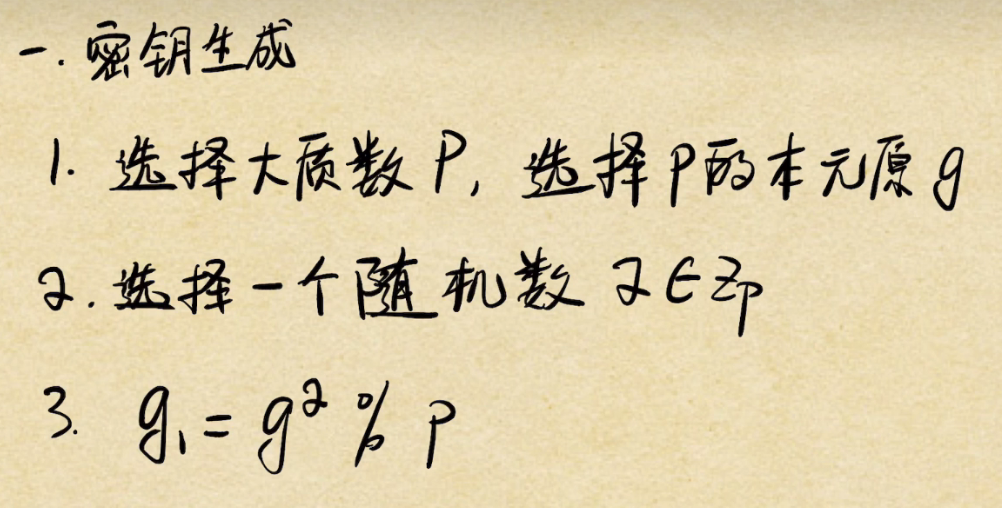 一. 密钥生成
1. 选择大质数P, 选择P的本元原g
2. 选择一个随机数 ∂∈Zp
3. g₁ = g^∂ % p